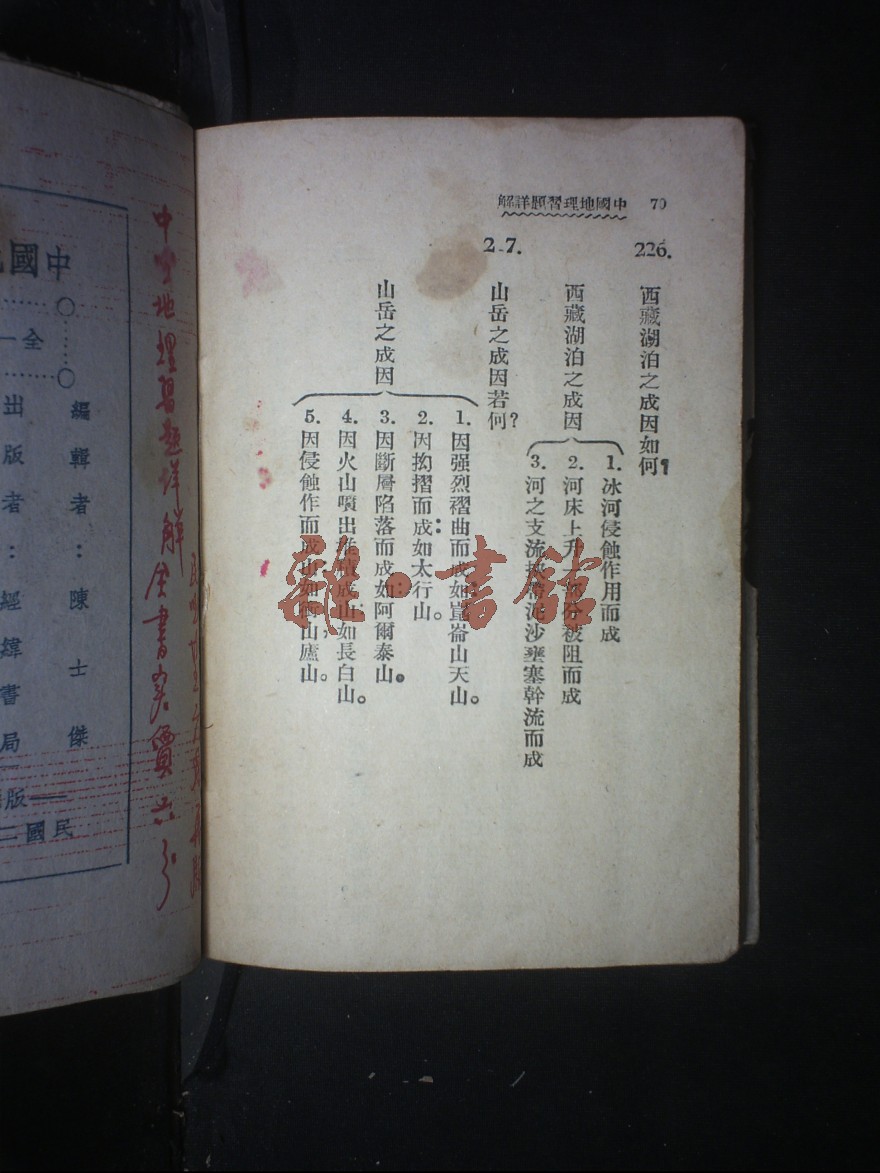 中國地理習題詳解 70
226.
西藏湖泊之成因如何?
西藏湖泊之成因
1. 冰河侵蝕作用而成
2. 河床上升一部分被阻而成
3. 河之支流挾帶泥沙壅塞幹流而成
2 7.
山岳之成因若何?
山岳之成因
1. 因强烈褶曲而成如崑崙山天山。
2. 因拗摺而成如太行山。
3. 因斷層陷落而成如阿爾泰山。
4. 因火山噴出堆積成山如長白山。
5. 因侵蝕作而成山如衡山廬山。
雜·書館
中國地理習題詳解全書實價六分
中國
全一
編輯者:陳士傑
出版者:經緯書局
版
民國二